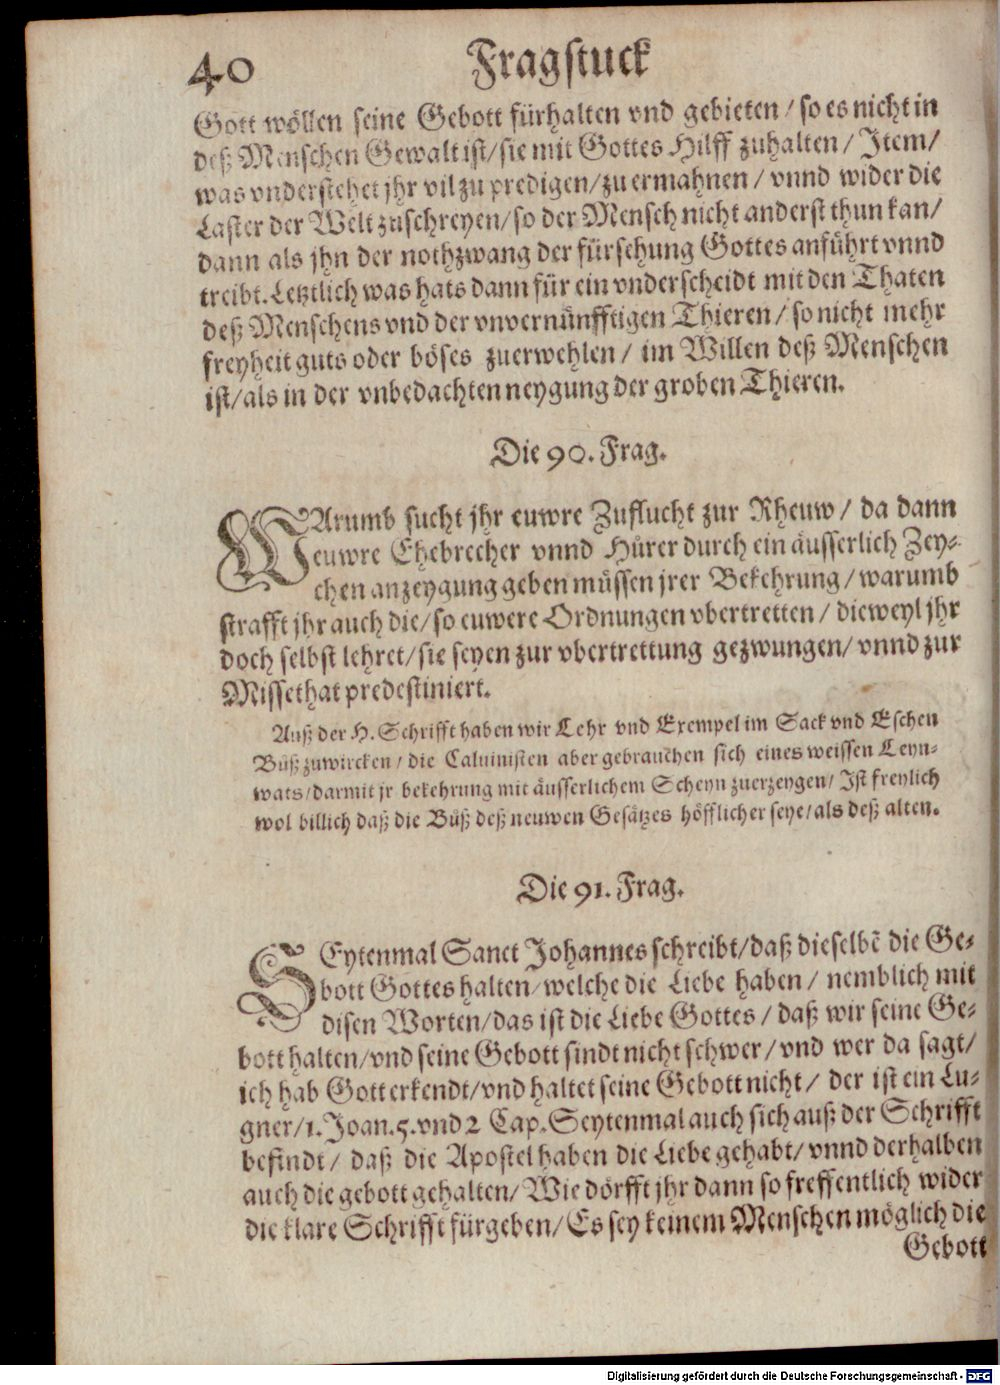 40 Fragstuck
Gott wöllen seine Gebott fürhalten vnd gebieten / so es nicht in
deß Menschen Gewalt ist / sie mit Gottes Hilff zuhalten / Item /
was vnderstehet jhr vil zu predigen / zu ermahnen / vnnd wider die
Laster der Welt zuschreyen / so der Mensch nicht anderst thun kan /
dann als jhn der nothzwang der fürsehung Gottes anführt vnnd
treibt. Letztlich was hats dann für ein vnderscheidt mit den Thaten
deß Menschens vnd der vnvernünfftigen Thieren / so nicht mehr
freyheit guts oder böses zuerwehlen / im Willen deß Menschen
ist / als in der vnbedachten neygung der groben Thieren.
Die 90. Frag.
WArumb sucht jhr euwre Zuflucht zur Rheuw / da dann
euwre Ehebrecher vnnd Hürer durch ein äusserlich Zey-
chen anzeygung geben müssen jrer Bekehrung / warumb
strafft jhr auch die / so euwere Ordnungen vbertretten / dieweyl jhr
doch selbst lehret / sie seyen zur vbertrettung gezwungen / vnnd zur
Missethat predestiniert.
Auß der H. Schrifft haben wir Lehr vnd Exempel im Sack vnd Eschen
Büß zuwircken / die Caluinisten aber gebrauchen sich eines weissen Leyn-
wats / darmit jr bekehrung mit äusserlichem Scheyn zuerzeygen / Ist freylich
wol billich daß die Büß deß neuwen Gesätzes höfflicher seye / als deß alten.
Die 91. Frag.
SEytenmal Sanct Johannes schreibt / daß dieselbē die Ge-
bott Gottes halten / welche die Liebe haben / nemblich mit
disen Worten / das ist die Liebe Gottes / daß wir seine Ge-
bott halten / vnd seine Gebott sindt nicht schwer / vnd wer da sagt /
ich hab Gott erkendt / vnd haltet seine Gebott nicht / der ist ein Lu-
gner / 1. Joan. 5. vnd 2 Cap. Seytenmal auch sich auß der Schrifft
befindt / daß die Apostel haben die Liebe gehabt / vnnd derhalben
auch die gebott gehalten / Wie dörfft jhr dann so freffentlich wider
die klare Schrifft fürgeben / Es sey keinem Menschen möglich die
Gebott
Digitalisierung gefördert durch die Deutsche Forschungsgemeinschaft - DFG